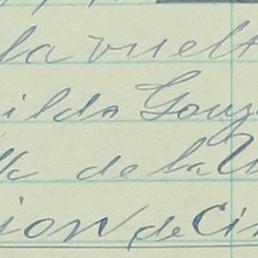 la vuelt
ilda Gonz
de la U
ion de Ci